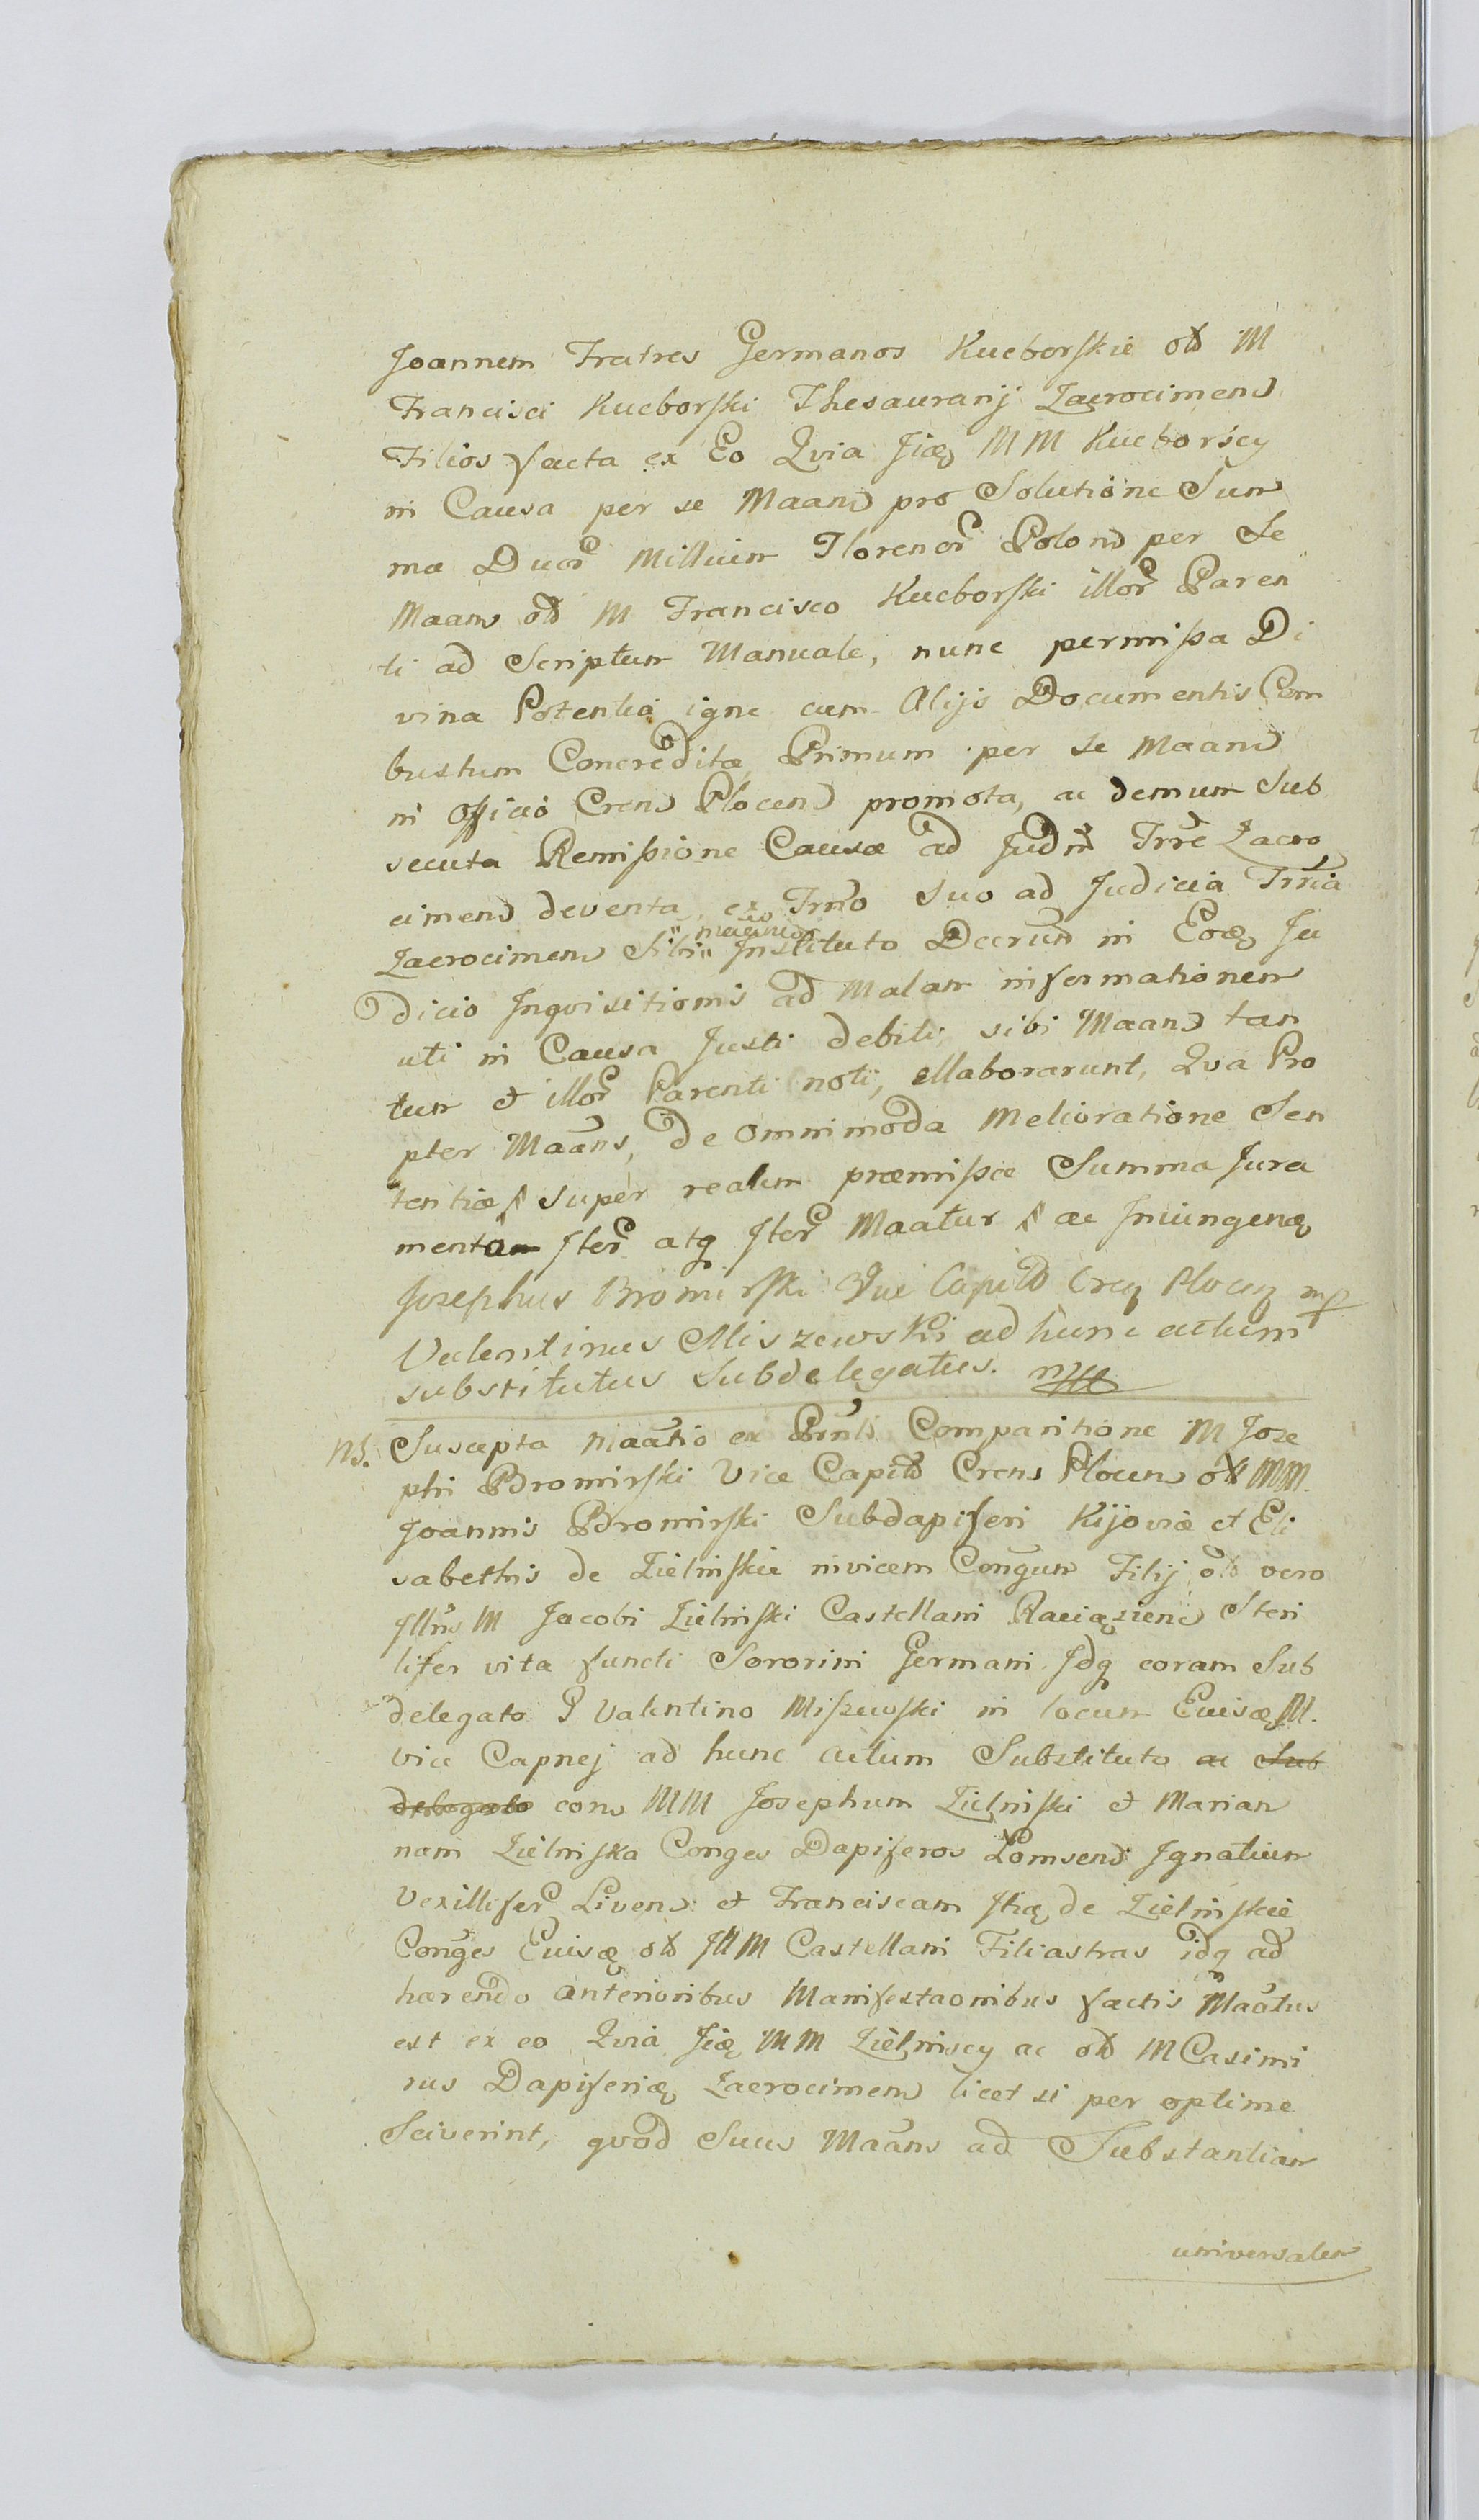 Joannem Fratres Germanos Kucborskie olb M
Francisci Kucborski Thesaurarij Zacrocimens
Filios facta ex Eo Qvia Jidē MM Kucborscy
in Causa per se Maans pro Solutione Sum
ma Duor Millium Florenor Polon per Se
Maans olb M Francisco Kucborski illor Paren
ti ad Scriptum Manuale, nunc permissa Di
vina Potentia igne cum Alijs Documentis Com
bustum Concreditæ Primum per se Maans
in Officio Crens Plocens promota, ac demum Sub
secuta Remissione Causæ ad Judm Trre Zacro
cimens deventa, ex Trmo suo ad Judicia Trria
Zacrocimens Sibi Instituto Decrum in Eodē Ju
dicio Inqvisitionis ad Malam informationem
uti in Causa Justi debiti sibi Maans tan
tum et illor Parenti noti, ellaborarunt, Qva Pro
pter Maans, De omnimoda Melioratione Sen
tentiæ super realem præmissæ Summa Jura
mentam Iter atq Iter Maatur ac Iniungendē
Josephus Bromirski Vice Capitb Creñ Plocen mp
Valentinus Miszewski ad hunc actum
substitutus Subdelegatus. mpp
NB. Suscepta Maatio ex Prnti Comparitione M Jose
phi Bromirski Vice Capitb Crens Plocens olb MM.
Joannis Bromirski Subdapiferi Kijoviæ et Eli
sabethis de Zielinskie invicem Congum Filij olb vero
Illris M Jacobi Zielinski Castellani Raciąziens Steri
liter vita functi Sororini Germani Idq coram Sub
delegato G Valentino Miszewski in locum Euisdē M.
vice Capnej ad hunc actum Substituto ac Sub
delegato cons MM Josephum Zielinski et Marian
nam Zielinska Conges Dapiferos Lomsens Ignatium
Vexillifer Livens et Franciscam Itidē de Zielinskie
Conges Euisdē olb JllM Castellani Filiastras idq ad
hærendo anterioribus Manifestaonibus factis Maatus
est ex eo Qvia Jidē MM Zielinscy ac olb M Casimi
rus Dapiferidē Zacrocimens licet si per optime
Sciverint, qvod Suus Maans ad Substantiam
universalem